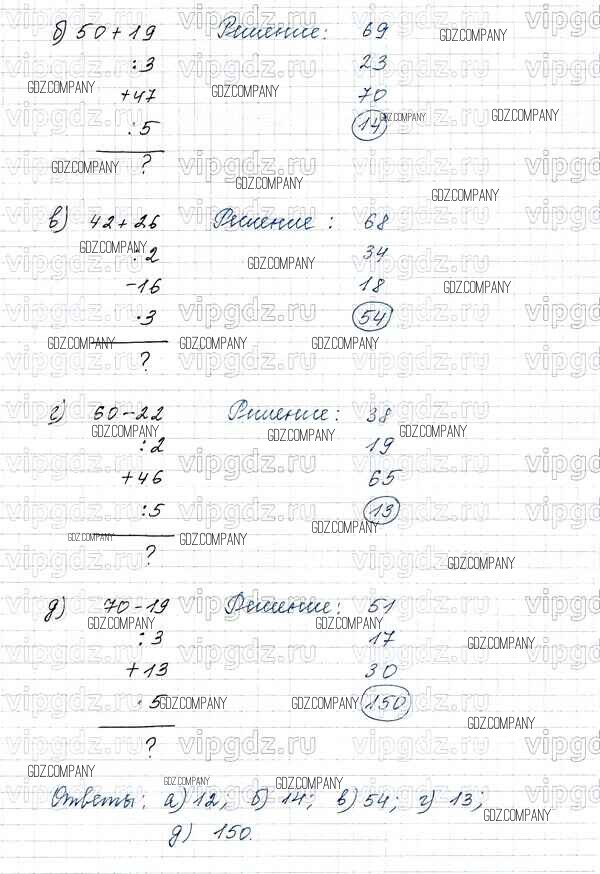 б) 50 + 19 Решение: 69
: 3 23
+ 47 70
: 5 14
?
в) 42 + 26 Решение: 68
: 2 34
- 16 18
· 3 54
?
г) 60 - 22 Решение: 38
: 2 19
+ 46 65
: 5 13
?
д) 70 - 19 Решение: 51
: 3 17
+ 13 30
· 5 150
?
Ответы: а) 12; б) 14; в) 54; г) 13;
д) 150.
vipgdz.ru
GDZ.COMPANY